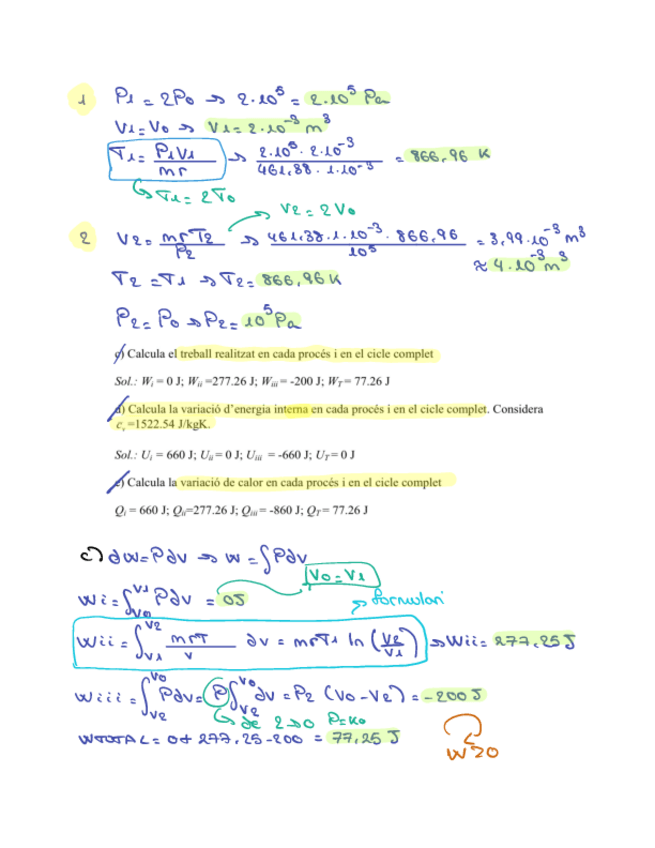 1 P1 = 2P0 → 2·10⁵ = 2·10⁵ Pa
V1 = V0 → V1 = 2·10⁻³ m³
T1 = P1V1 / mr → 2·10⁵ · 2·10⁻³ / 461,38 · 1·10⁻³ = 866,96 K
↳ T1 = 2T0
→ V2 = 2V0
2 V2 = mrT2 / P2 → 461,38 · 1·10⁻³ · 866,96 / 10⁵ = 3,99·10⁻³ m³
≈ 4·10⁻³ m³
T2 = T1 → T2 = 866,96 K
P2 = P0 → P2 = 10⁵ Pa
c) Calcula el treball realitzat en cada procés i en el cicle complet
Sol.: Wi = 0 J; Wii =277.26 J; Wiii = -200 J; WT = 77.26 J
d) Calcula la variació d'energia interna en cada procés i en el cicle complet. Considera
cv =1522.54 J/kgK.
Sol.: Ui = 660 J; Uii = 0 J; Uiii = -660 J; UT = 0 J
e) Calcula la variació de calor en cada procés i en el cicle complet
Qi = 660 J; Qii=277.26 J; Qiii = -860 J; QT = 77.26 J
c) dW = PdV → W = ∫PdV
V0 = V1
Wi = ∫V0 V1 PdV = 0J
→ formulari
Wii = ∫V1 V2 mrT / V dV = mrT1 ln (V2/V1) → Wii = 277,25 J
Wiii = ∫V2 V0 PdV = P ∫V2 V0 dV = P2 (V0 - V2) = -200 J
↳ de 2→0 P=K
WTOTAL = 0 + 277,25 - 200 = 77,25 J
W>0